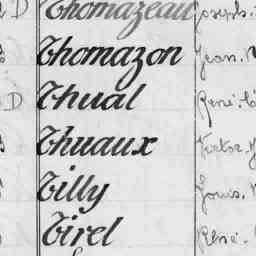 D Thomazeau Joseph.
Thomazon Jean.
D Thual René
Thuaux Victor
Tilly Louis.
Tirel René